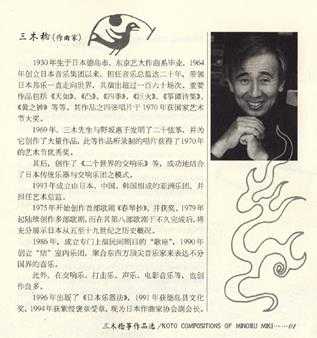 三木稔(作曲家)
1930年生于日本德岛市。东京艺大作曲系毕业。1964
年创立日本音乐集团以来，担任音乐总监达二十年，带领
日本邦乐一直走向世界，其演出超过一百六十场次。重要
作品包括《天如》、《凸》、《四季》、《巨火》、《筝谭诗集》、
《黄之钟》等等。其作品之四张唱片于1970年获国家艺术
节大奖。
1969年，三木先生与野坂惠子发明了二十弦筝，并为
它创作了大量作品，此等作品所录制的唱片获得了1970年
的艺术节优秀奖。
其后，创作了《二个世界的交响乐》等，成功地结合
了日本传统乐器与交响乐团之模式。
1993年成立由日本、中国、韩国组成的亚洲乐团，并
担任艺术总监。
1975年开始创作首部歌剧《春琴抄》，并获奖。1979年
起陆续创作多部歌剧，而在其第八部歌剧于不久完成后，将
充分展示日本从五至十九世纪之历史概况。
1986年，成立专门上演民间剧目的“歌座”，1990年
创立“结”室内乐团，聚合东西方顶尖音乐家来表达不分
国界的音乐。
此外，在交响乐、打击乐、声乐、电影音乐等，也创
作良多。
1996年出版了《日本乐器法》，1991年获德岛县文化
奖，1994年获紫绶褒章受章。现为日本作曲家协会副会长。
三木稔筝作品选/KOTO COMPOSITIONS OF MINORU MIKI……01